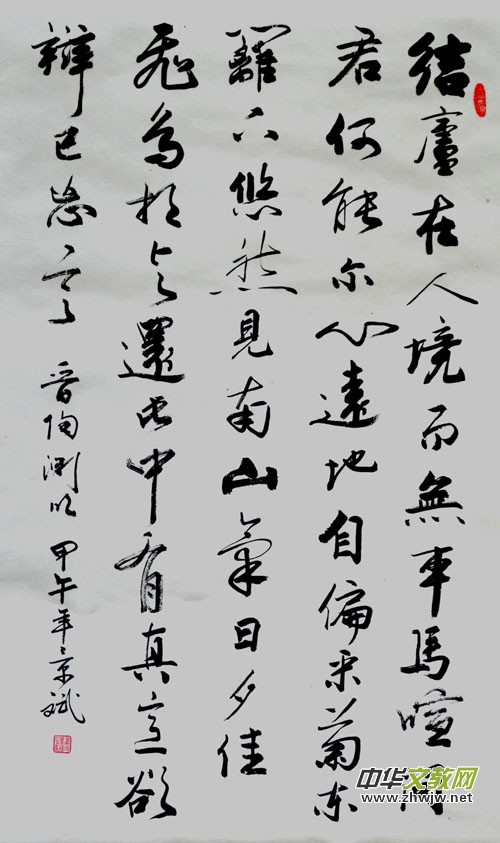 結廬在人境而無車馬喧問
君何能尓心遠地自偏采菊东
籬下悠然見南山氣日夕佳
飛鳥相与還此中有真意欲
辨已忘言 晋陶渊明 甲午年京斌
中华文教网
www.zhwjw.net